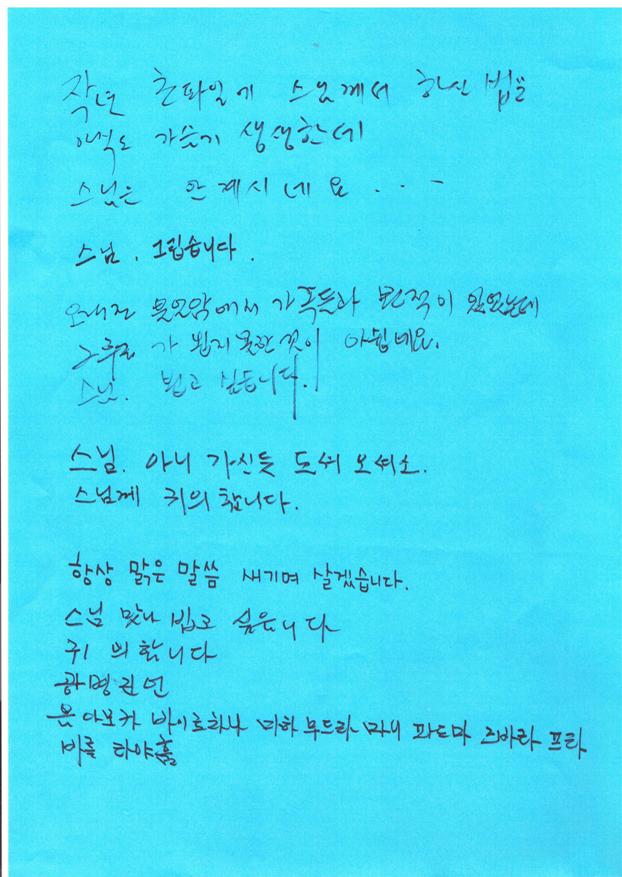 작년 초파일에 스님께서 하신 법문
아직도 가슴에 생생한데
스님은 안 계시네요...
스님. 그립습니다.
오래전 불일암에서 가족들과 뵌적이 있었는데
그후로 가 뵙지 못한것이 아쉽네요.
스님. 뵙고 싶습니다.
스님. 아니 가신듯 도셔 오셔소.
스님께 귀의합니다.
항상 맑은 말씀 새기며 살겠습니다.
스님 맞나 뵙고 싶습니다
귀의합니다
광명진언
옴 아모카 바이로차나 마하 무드라 마니 파드마 즈바라 프라
바를 타야훔